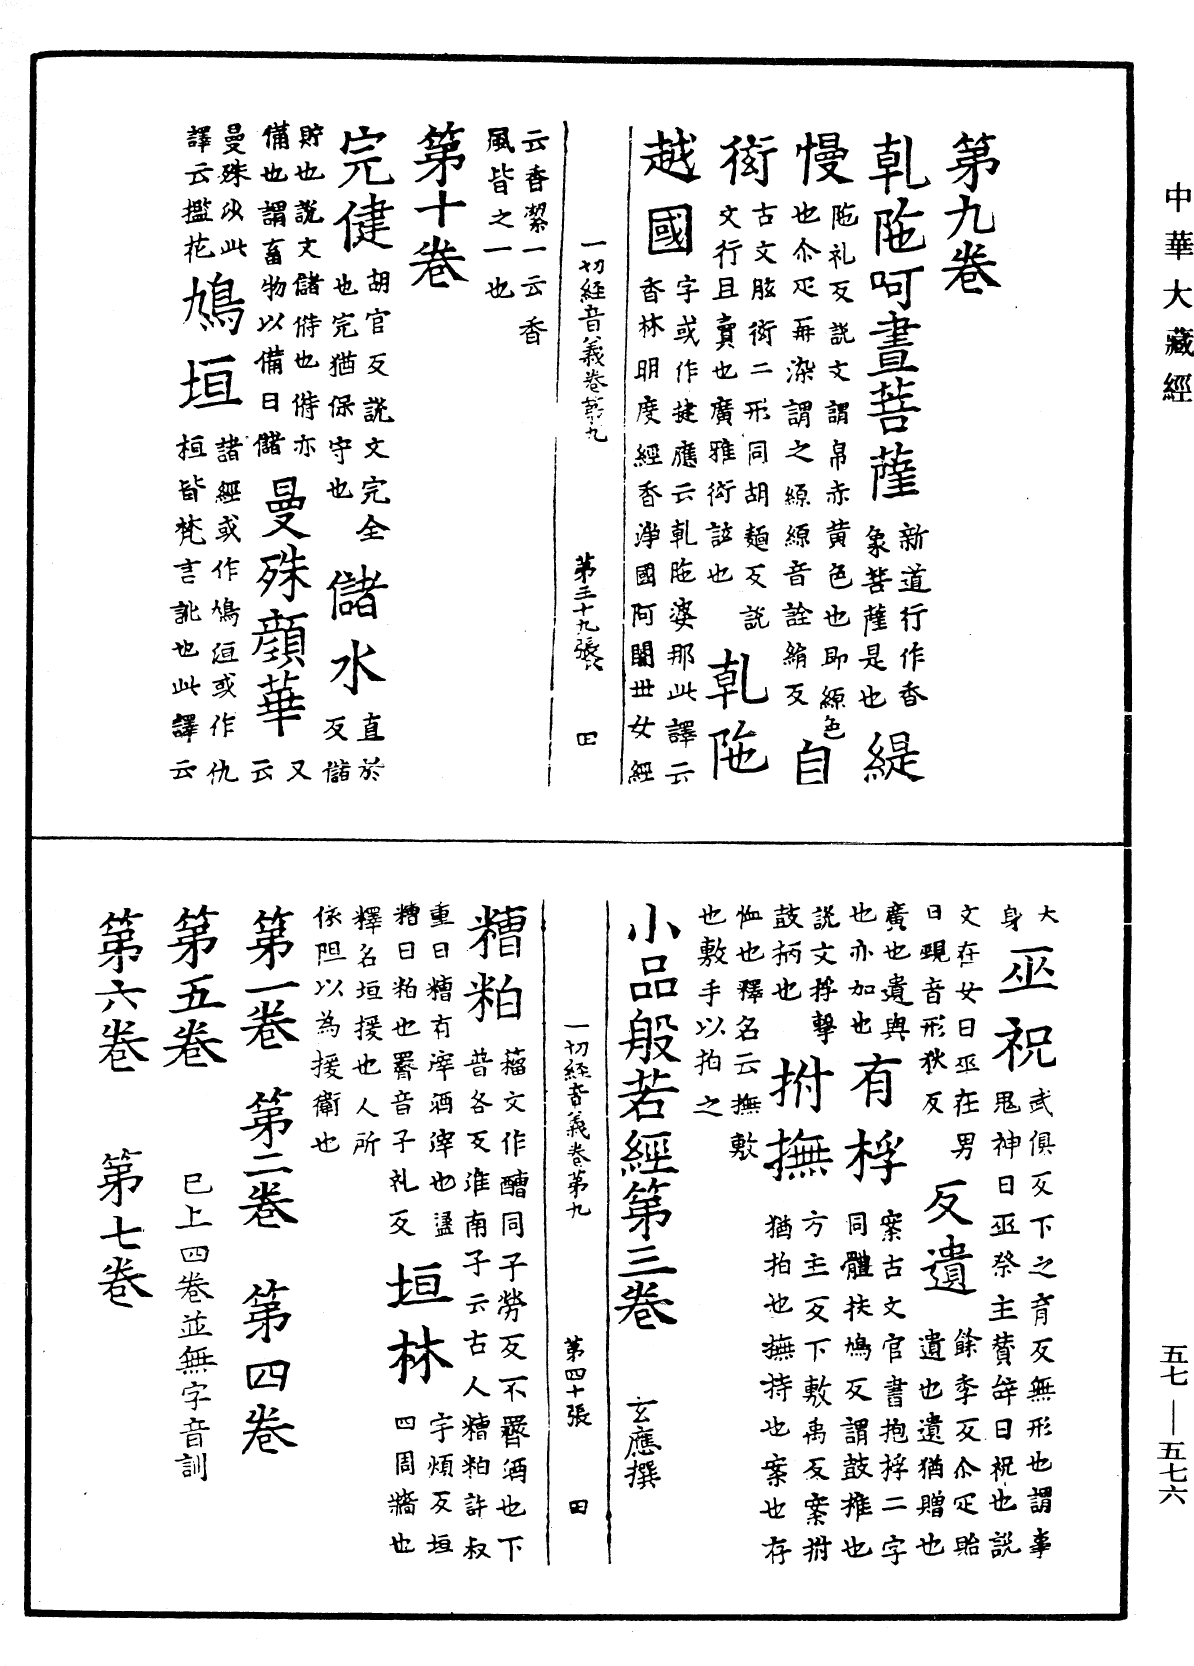 中華大藏經
第九卷
乹陁呵晝菩薩 新道行作香象菩薩是也 緹
慢 陁礼反説文謂帛赤黄色也即縓色也尒疋再染謂之縓縓音詮絹反 自
衒 古文眩衒二形同胡麵反説文行且賣也廣雅衒詃也 乹陁
越國 字或作揵應云乹陁婆那此譯云香林明度經香浄國阿閦世女經
一切經音義卷第九 第三十九張 四
云香潔一云香風皆之一也
第十卷
完健 胡官反説文完全也完猶保守也 儲水 直於反儲
貯也説文儲偫也偫亦備也謂畜物以備日儲 曼殊顔華 又云
曼殊沙此譯云擥花 鳩垣 諸經或作鳩洹或作仇桓皆梵言訛也此譯云
大身 巫祝 武俱反下之育反無形也謂事鬼神曰巫祭主賛辝曰祝也説
文在女曰巫在男曰覡音形狄反 反遺 餘季反尒疋貽遺也遺猶贈也
廣也遺與也亦加也 有桴 案古文官書抱捊二字同體扶鳩反謂鼓搥也
説文捊擊鼓柄也 拊撫 方主反下敷禹反案拊猶拍也撫持也案也存
恤也釋名云撫敷也敷手以拍之
小品般若經第三卷 玄應撰
一切經音義卷第九 第四十張 田
糟粕 籀文作醩同子勞反不䤘酒也下普各反淮南子云古人糟粕許叔
重曰糟有滓酒滓也盪糟曰粕也䤘音子礼反 垣林 宇煩反垣四周牆也
釋名垣援也人所依阻以為援衛也
第一卷 第二卷 第四卷
第五卷 已上四卷並無字音訓
第六卷 第七卷
五七—五七六